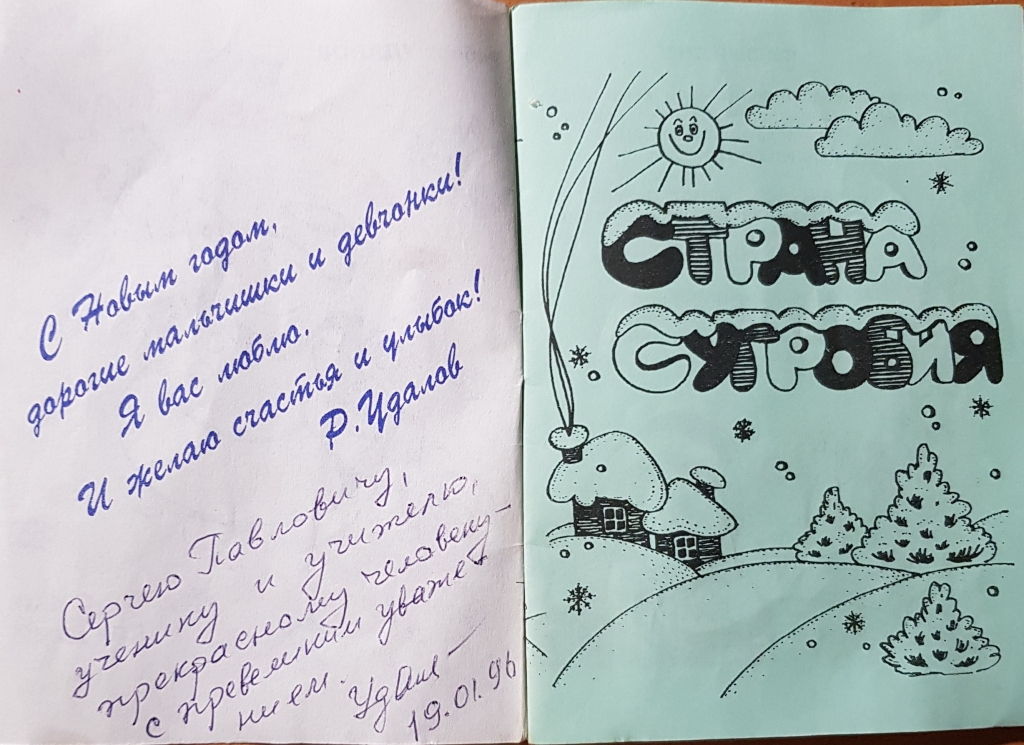 С Новым годом,
дорогие мальчишки и девчонки!
Я вас люблю.
И желаю счастья и улыбок!
Р.Удалов
Сергею Павловичу,
ученику и учителю,
прекрасному человеку -
с превеликим уваже-
нием.
19.01.96
СТРАНА
СУГРОБИЯ